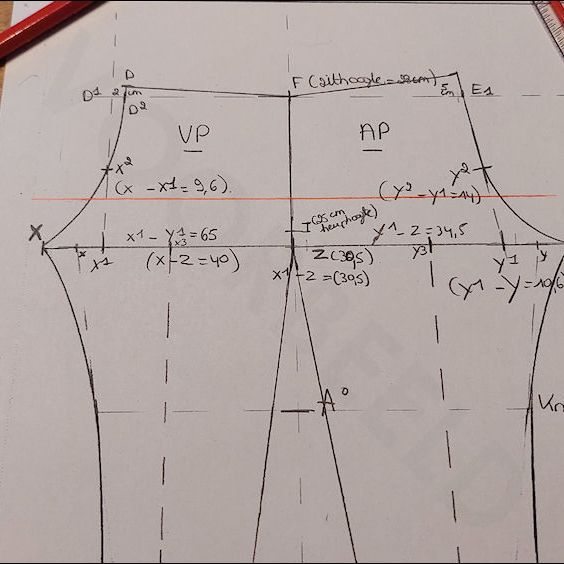 D
D1 2 cm
D2
F (zithoogte = 28cm)
5 cm E1
VP
AP
x2
(x - x1 = 9,6)
y2
(y2 - y1 = 14)
I (25 cm heuphoogte)
X
x1 - y1 = 65
y1 - z = 34,5
x
x1
x3
(x - z = 40)
z (30,5)
x1 - z = (30,5)
y3
y1
y
(y1 - y = 10,6
A°
Kn